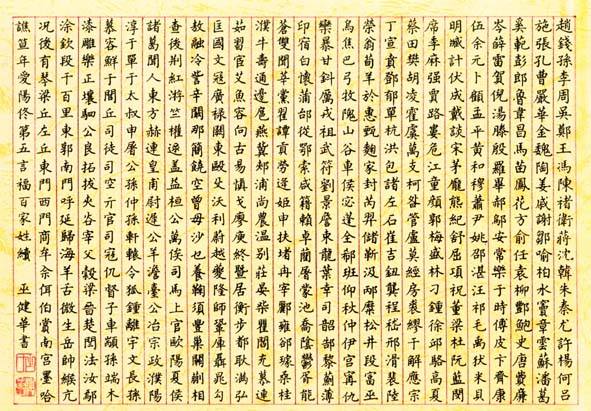 趙錢孫李周吳鄭王馮陳褚衛蔣沈韓朱秦尤許楊何呂
施張孔曹嚴華金魏陶姜戚謝鄒喻柏水竇章雲蘇潘葛
奚範彭郎魯韋昌馬苗鳳花方俞任袁柳酆鮑史唐費廉
岑薛雷賀倪湯滕殷羅畢郝鄔安常樂于時傅皮卞齊康
伍余元卜顧孟平黃和穆蕭尹姚邵湛汪祁毛禹狄米貝
明臧計伏成戴談宋茅龐熊紀舒屈項祝董梁杜阮藍閔
席季麻强賈路婁危江童顏郭梅盛林刁鍾徐邱駱高夏
蔡田樊胡凌霍虞萬支柯昝管盧莫經房裘繆干解應宗
丁宣賁鄧郁單杭洪包諸左石崔吉鈕龔程嵇邢滑裴陸
榮翁荀羊於惠甄麴家封芮羿儲靳汲邴糜松井段富巫
烏焦巴弓牧隗山谷車侯宓蓬全郗班仰秋仲伊宮甯仇
欒暴甘鈄厲戎祖武符劉景詹束龍葉幸司韶郜黎薊薄
印宿白懷蒲邰從鄂索咸籍賴卓藺屠蒙池喬陰鬱胥能
蒼雙聞莘黨翟譚貢勞逄姬申扶堵冉宰酈雍卻璩桑桂
濮牛壽通邊扈燕冀郟浦尚農溫別莊晏柴瞿閻充慕連
茹習宦艾魚容向古易慎戈廖庾終暨居衡步都耿滿弘
匡國文寇廣祿闕東毆殳沃利蔚越夔隆師鞏厙聶晁勾
敖融冷訾辛闞那簡饒空曾毋沙乜養鞠須豐巢關蒯相
查後荊紅游竺權逯蓋益桓公萬俟司馬上官歐陽夏侯
諸葛聞人東方赫連皇甫尉遲公羊澹臺公冶宗政濮陽
淳于單于太叔申屠公孫仲孫軒轅令狐鍾離宇文長孫
慕容鮮于閭丘司徒司空亓官司寇仉督子車顓孫端木
漆雕樂正壤駟公良拓拔夾谷宰父穀梁晉楚閆法汝鄢
涂欽段干百里東郭南門呼延歸海羊舌微生岳帥緱亢
況後有琴梁丘左丘東門西門商牟佘佴伯賞南宮墨哈
譙笪年愛陽佟第五言福百家姓續 巫健華書